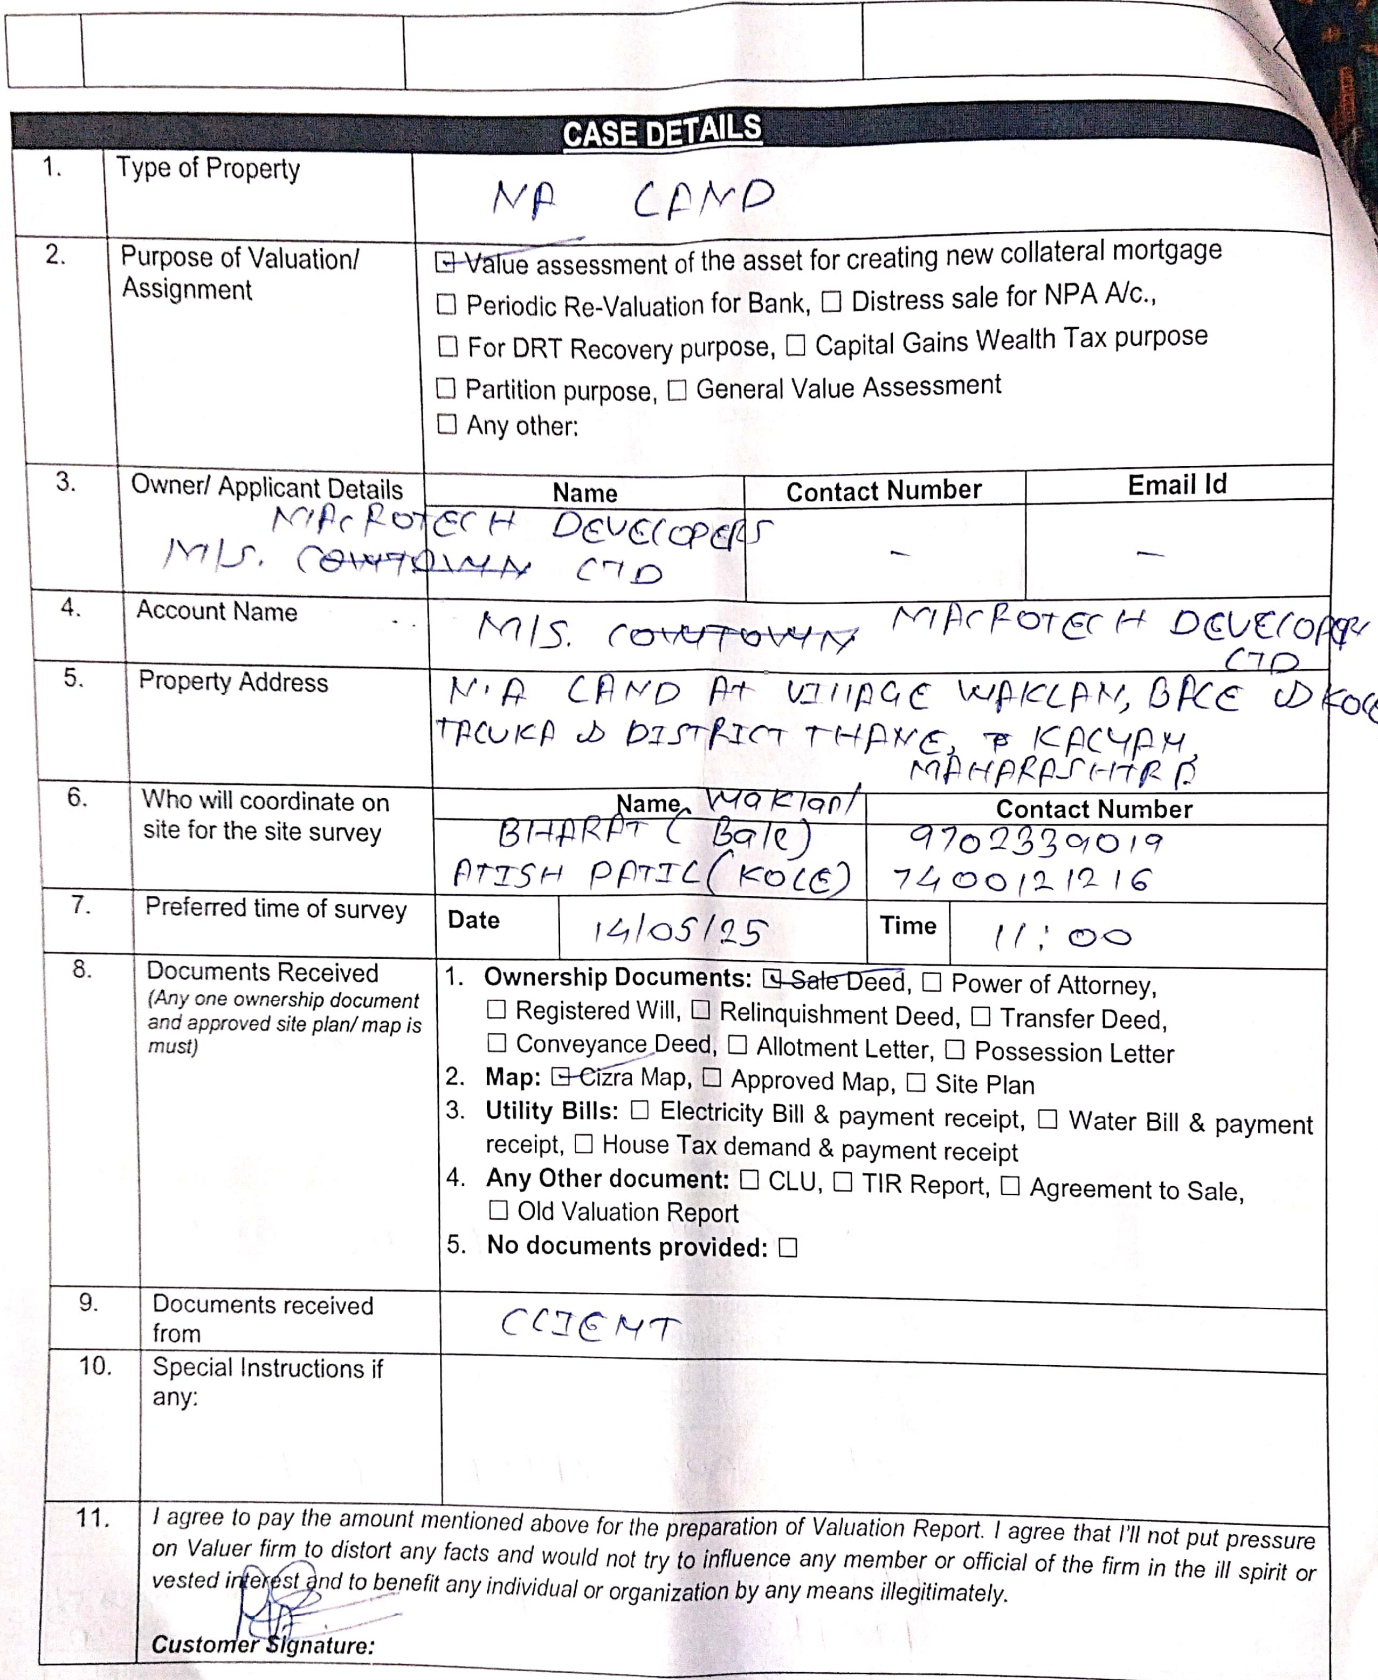 CASE DETAILS
1. Type of Property NA LAND
2. Purpose of Valuation/ Assignment
☑ Value assessment of the asset for creating new collateral mortgage
☐ Periodic Re-Valuation for Bank, ☐ Distress sale for NPA A/c.,
☐ For DRT Recovery purpose, ☐ Capital Gains Wealth Tax purpose
☐ Partition purpose, ☐ General Value Assessment
☐ Any other:
3. Owner/ Applicant Details Name Contact Number Email Id
MACROTECH DEVELOPERS
M/S. COWTOWN LTD - -
4. Account Name M/S. COWTOWN MACROTECH DEVELOPER
LTD
5. Property Address N.A LAND At VILLAGE WAKLAN, BALE & KOLE
TALUKA & DISTRICT THANE, KALYAN,
MAHARASHTRA
6. Who will coordinate on site for the site survey Name Contact Number
Waklan/
BHARAT (Bale) 9702339019
ATISH PATIL (KOLE) 7400121216
7. Preferred time of survey Date 14/05/25 Time 11:00
8. Documents Received
(Any one ownership document
and approved site plan/ map is
must)
1. Ownership Documents: ☑ Sale Deed, ☐ Power of Attorney,
☐ Registered Will, ☐ Relinquishment Deed, ☐ Transfer Deed,
☐ Conveyance Deed, ☐ Allotment Letter, ☐ Possession Letter
2. Map: ☑ Cizra Map, ☐ Approved Map, ☐ Site Plan
3. Utility Bills: ☐ Electricity Bill & payment receipt, ☐ Water Bill & payment
receipt, ☐ House Tax demand & payment receipt
4. Any Other document: ☐ CLU, ☐ TIR Report, ☐ Agreement to Sale,
☐ Old Valuation Report
5. No documents provided: ☐
9. Documents received from CLIENT
10. Special Instructions if any:
11. I agree to pay the amount mentioned above for the preparation of Valuation Report. I agree that I'll not put pressure
on Valuer firm to distort any facts and would not try to influence any member or official of the firm in the ill spirit or
vested interest and to benefit any individual or organization by any means illegitimately.
Customer Signature: